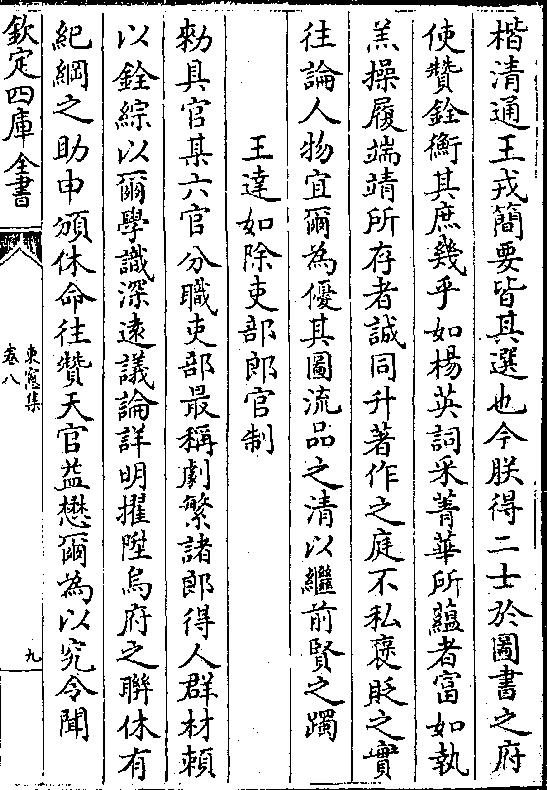 楷清通王戎簡要皆其選也今朕得二士於圖書之府
使贊銓衡其庶幾乎如楊英詞采菁華所蘊者富如執
羔操履端靖所存者誠同升著作之庭不私褒貶之實
往論人物宜爾為優其圖流品之清以繼前賢之躅
王達如除吏部郎官制
勅具官某六官分職吏部最稱劇繁諸郎得人群材頼
以銓綜以爾學識深逺議論詳明擢陞烏府之聨休有
紀綱之助申頒休命往贊天官益懋爾為以究令聞
欽定四庫全書
東窓集
卷八
九